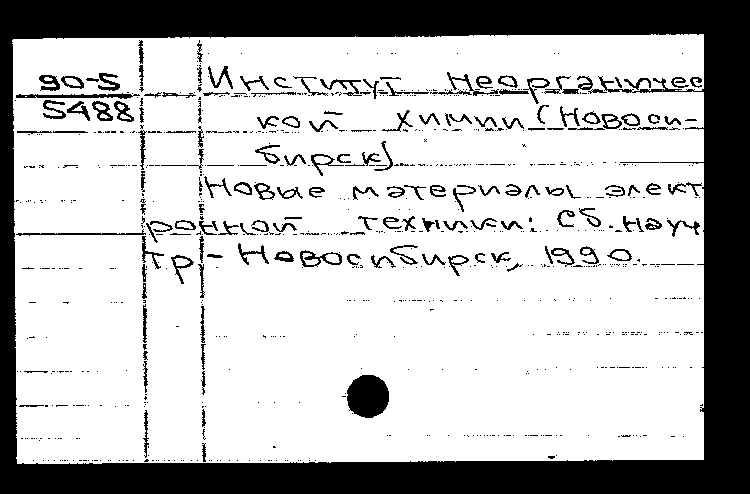 90-5
5488
Институт неорганичес
кой химии (Новоси-
бирск)
Новые материалы элект
ронной техники: Сб. науч
тр - Новосибирск, 1990.